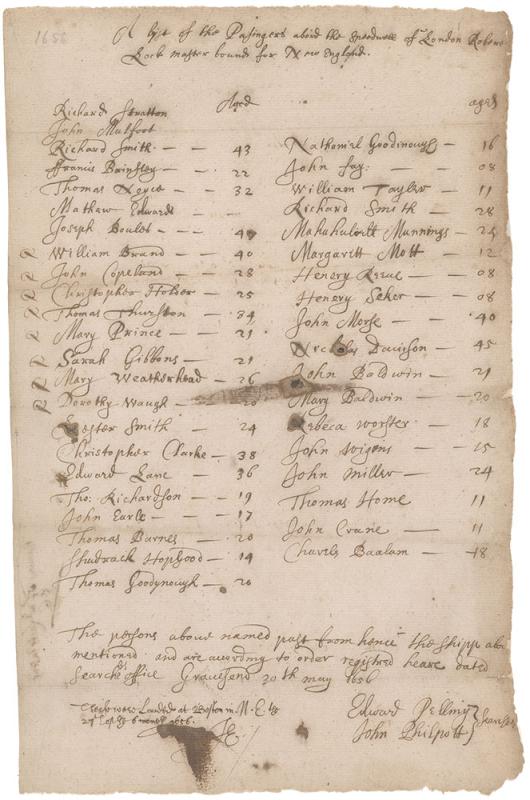 1656
A lyst of the Pasingers abord the Speedwell of London Robert
Lock master bound for New England.
Aged
ages
Richard Stratton
John Mulfoot
Richard Smith — 43
ffrancis Brinsley — 22
Thomas Noyce — 32
Mathew Edwards — —
Joseph Boules — — 47
R William Brand — 40
R John Copeland — 28
R Christopher Holder — 25
R Thomas Thurston — 34
R Mary Prince — 21
R Sarah Gibbons — 21
R Mary Weatherhead — 26
R Dorothy Waugh — 20
Lester Smith — 24
Christopher Clarke — 38
Edward Lane — 36
Tho: Richardson — 19
John Earle — 17
Thomas Barnes — 20
Shudrack Hopgood — 14
Thomas Goodynough — 20
Nathaniel Goodinough — 16
John fay: — 08
William Tayler — 11
Richard Smith — 28
Muhuhulett Munnings — 24
Margarett Mott — 12
Henery Reeve — 08
Henery Seker — 08
John Morse — 40
Nicholas Davison — 45
John Baldwin — 21
Mary Baldwin — 20
Rebeca Worster — 18
John Wigens — 15
John Miller — 24
Thomas Home 11
John Crane — 11
Charels Baalam — 18
The persons above named past from hence the shipp abo
mentioned and are according to order registred heare dated
Search office Gravesend 30th may 1656
Landed at Boston in N. E.
27th of 6 month 1656.
Edward Pelling
John Philpott } Searchers